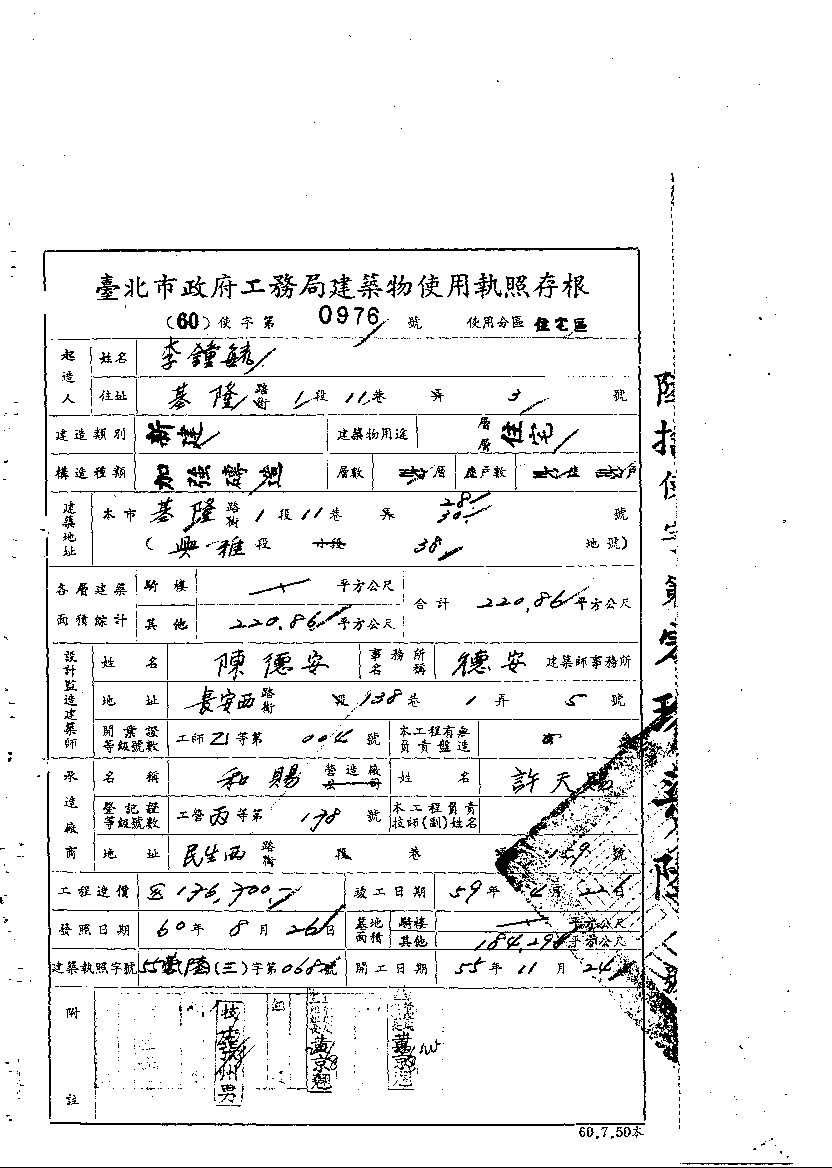 臺北市政府工務局建築物使用執照存根
(60)使字第 0976 號 使用分區 住宅區
起造人 姓名 李鐘
住址 基隆路街 1 段 11 巷 弄 3 號
建造類別 新建 建築物用途 層層 住宅
構造種類 加強磚造 層數 層 座戶數 戶
建築地址 本市 基隆路街 1 段 11 巷 弄 28 30 號
(興雅段 小段 38 地號)
各層建築面積綜計 騎樓 平方公尺 合計 220.86 平方公尺
其他 220.86 平方公尺
設計監造建築師 姓名 陳德安 事務所名稱 德安 建築師事務所
地址 長安西路街 段 138 巷 1 弄 5 號
開業證等級號數 工師乙等第 004 號 本工程有無負責監造
承造廠商 名稱 和賜 營造廠公司 姓名 許天賜
登記證等級號數 工營丙等第 138 號 本工程負責技師(副)姓名
地址 民生西路街 段 巷 159 號
工程造價 竣工日期 59 年 月 日
發照日期 60 年 8 月 26 日 基地面積 騎樓 平方公尺
其他 184.29 平方公尺
建築執照字號 55 (三)字第 068 號 開工日期 55 年 11 月 24
附註
60.7.50本